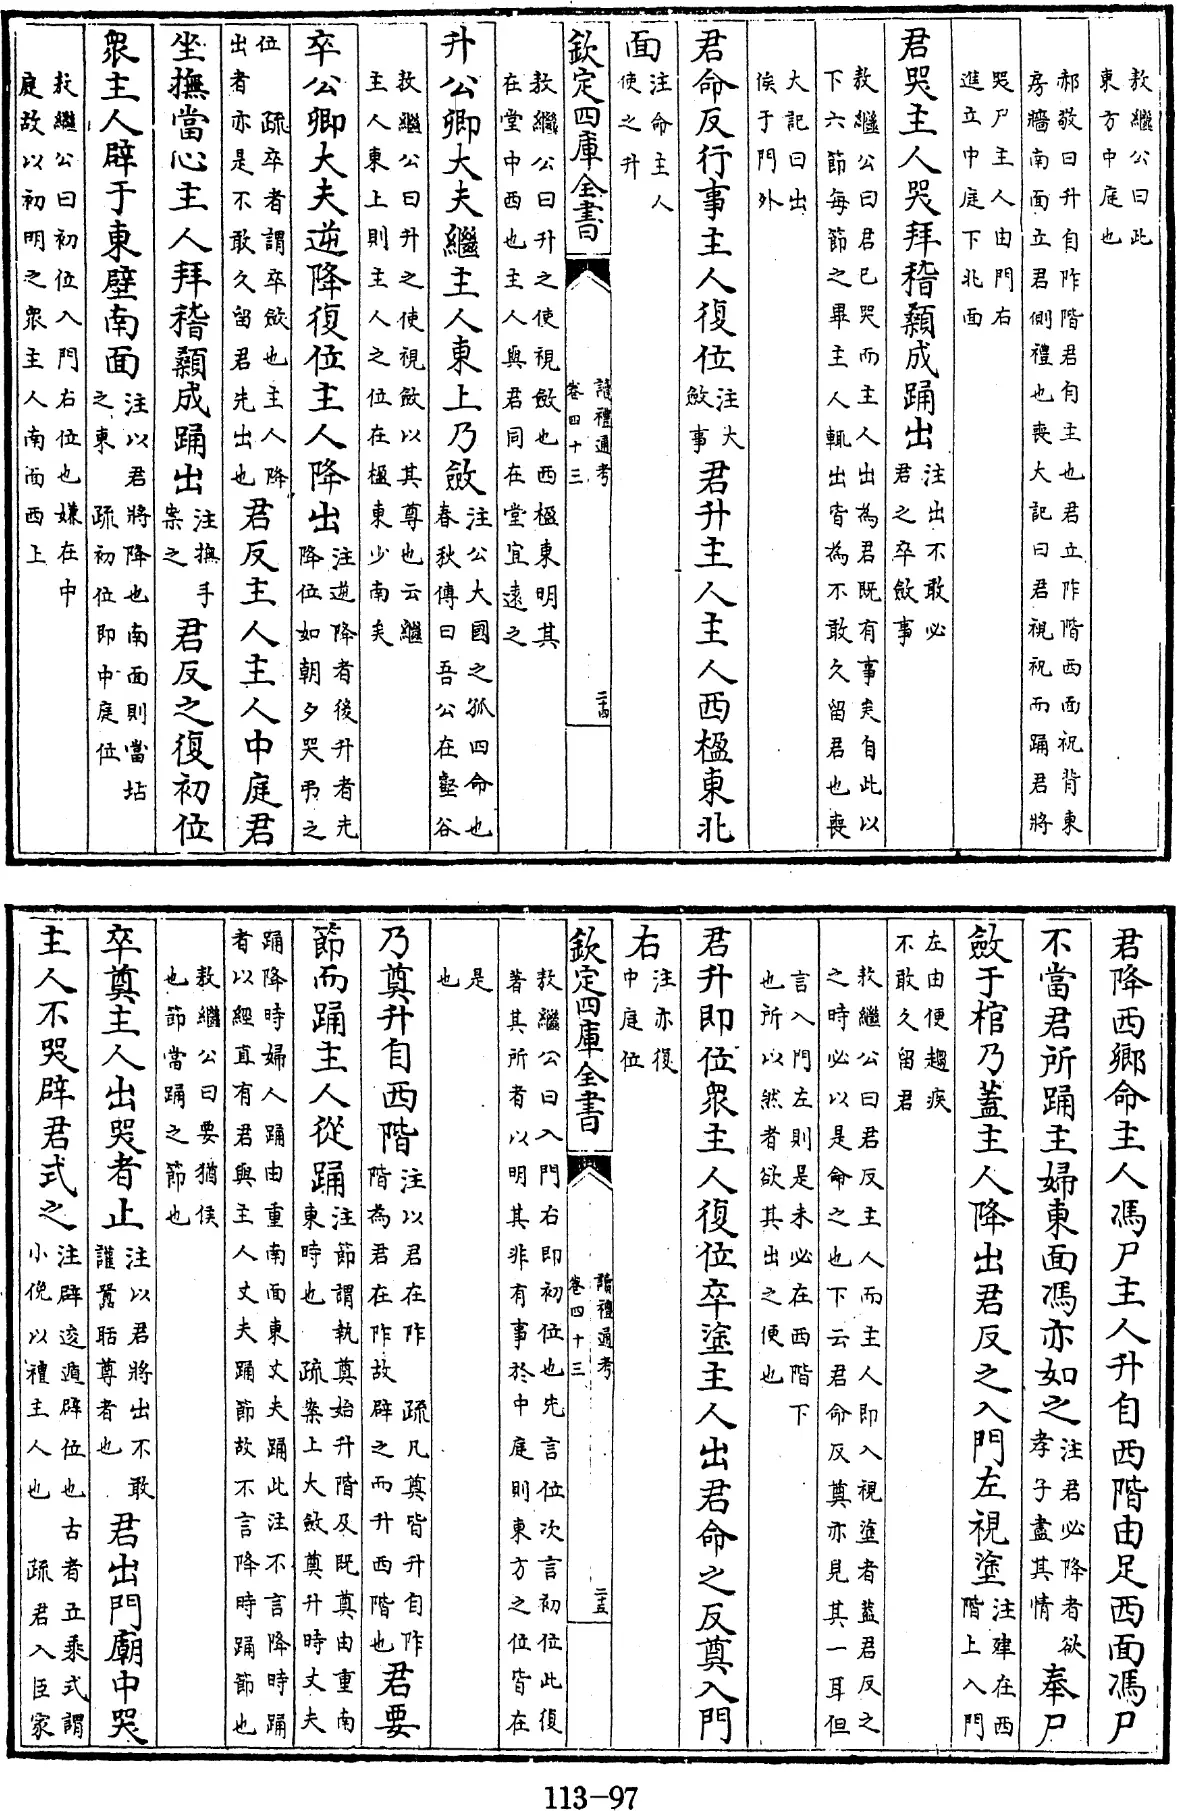 敖繼公曰此
東方中庭也
郝敬曰升自阼階君有主也君立阼階西面祝背東
房牆南面立君側禮也喪大記曰君視祝而踊君將
哭尸主人由門右
進立中庭下北面
君哭主人哭拜稽顙成踊出注出不敢必
君之卒斂事
敖繼公曰君已哭而主人出為君既有事矣自此以
下六節每節之畢主人輒出皆為不敢久留君也喪
大記曰出
俟于門外
君命反行事主人復位注大
斂事君升主人主人西楹東北
面注命主人
使之升
欽定四庫全書
讀禮通考
卷四十三
二十四
敖繼公曰升之使視斂也西楹東明其
在堂中西也主人與君同在堂宜遠之
升公卿大夫繼主人東上乃斂注公大國之孤四命也
春秋傳曰吾公在壑谷
敖繼公曰升之使視斂以其尊也云繼
主人東上則主人之位在楹東少南矣
卒公卿大夫逆降復位主人降出注逆降者後升者先
降位如朝夕哭弔之
位 疏卒者謂卒斂也主人降
出者亦是不敢久留君先出也君反主人主人中庭君
坐撫當心主人拜稽顙成踊出注撫手
案之君反之復初位
衆主人辟于東壁南面注以君將降也南面則當坫
之東 疏初位即中庭位
敖繼公曰初位入門右位也嫌在中
庭故以初明之衆主人南面西上
君降西鄉命主人馮尸主人升自西階由足西面馮尸
不當君所踊主婦東面馮亦如之注君必降者欲
孝子盡其情奉尸
斂于棺乃蓋主人降出君反之入門左視塗注建在西
階上入門
左由便趨疾
不敢久留君
敖繼公曰君反主人而主人即入視塗者蓋君反之
之時必以是命之也下云君命反奠亦見其一耳但
言入門左則是未必在西階下
也所以然者欲其出之便也
君升即位衆主人復位卒塗主人出君命之反奠入門
右注亦復
中庭位
欽定四庫全書
讀禮通考
卷四十三
二十五
敖繼公曰入門右即初位也先言位次言初位此復
著其所者以明其非有事於中庭則東方之位皆在
是
也
乃奠升自西階注以君在阼 疏凡奠皆升自阼
階為君在阼故辟之而升西階也君要
節而踊主人從踊注節謂執奠始升階及既奠由重南
東時也 疏案上大斂奠升時丈夫
踊降時婦人踊由重南面東丈夫踊此注不言降時踊
者以經直有君與主人丈夫踊節故不言降時踊節也
敖繼公曰要猶俟
也節當踊之節也
卒奠主人出哭者止注以君將出不敢
讙嚻聒尊者也君出門廟中哭
主人不哭辟君式之注辟逡遁辟位也古者立乘式謂
小俛以禮主人也 疏君入臣家
113-97